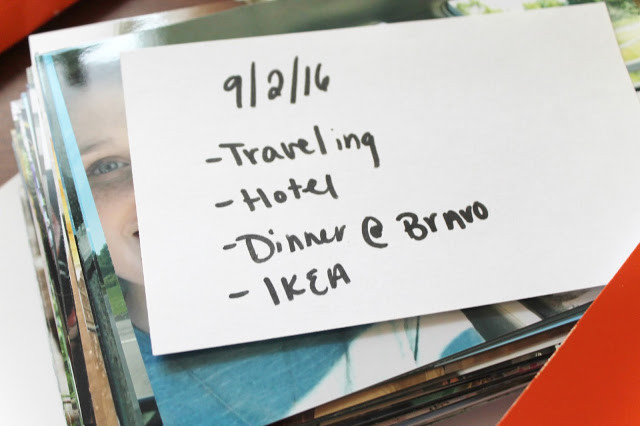 9/2/16
- Traveling
- Hotel
- Dinner @ Bravo
- IKEA